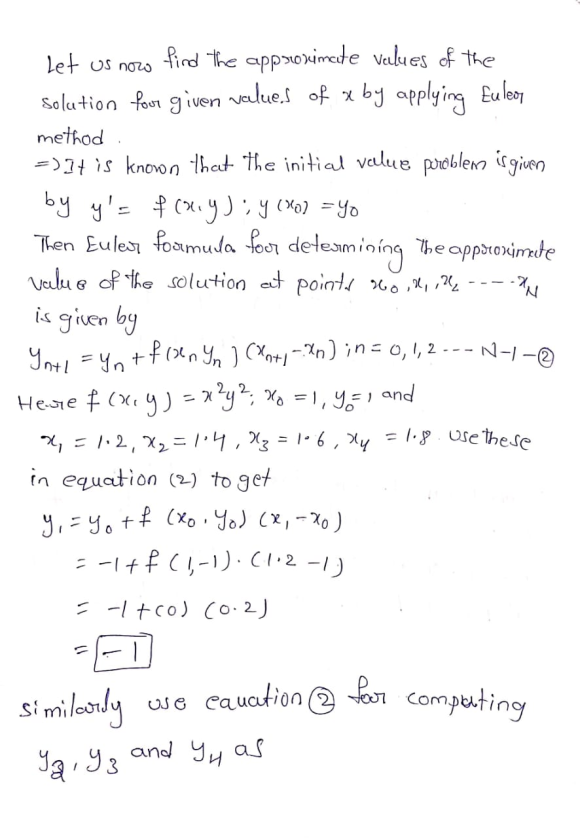 Let us now find the approximate values of the
solution for given values of x by applying Euler
method.
=> It is known that the initial value problem is given
by y' = f(x,y); y(x₀) = y₀
Then Euler formula for determining the approximate
value of the solution at points x₀, x₁, x₂ ---- x_N
is given by
y_{n+1} = y_n + f(x_n y_n) (x_{n+1} - x_n); n = 0, 1, 2 --- N-1 - ②
Here f(x, y) = x²y²; x₀ = 1, y₀ = 1 and
x₁ = 1.2, x₂ = 1.4, x₃ = 1.6, x₄ = 1.8. Use these
in equation (2) to get
y₁ = y₀ + f (x₀, y₀) (x₁ - x₀)
= -1 + f (1, -1) . (1.2 - 1)
= -1 + (0) (0.2)
= -1
similarly use eauation ② for computing
y₂, y₃ and y₄ as